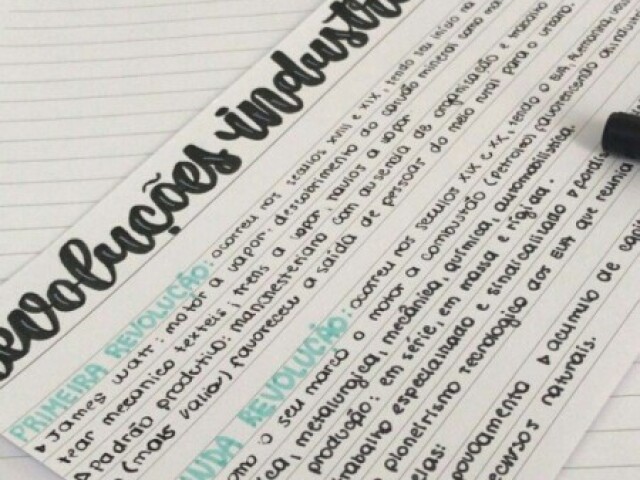 evoluções industr
PRIMEIRA REVOLUÇÃO: ocorreu nos seculos XVIII e XIX, tendo seu início na
▷ James watt: motor a vapor, descobrimento do carvão mineral como
tear mecanico textels; trens a vapor, navios a vapor
▷ Padrão produtivo: manchesteriano com ausencia de organização e trabalho
(mais valia) favoreceu a saída de pessoas do meio rural para o urbano.
UNDA REVOLUÇÃO: ocorreu nos seculos XIX e XX, tendo o EUA, Alemanha,
omo o seu marco o motor a combustão (petroleo) favorecendo as indus
ica, metalurgica, mecânica, quimica, automobilistica.
produção: em série, em massa e rigida.
trabalho especialinado e sindicalizado ▷
o pioneirismo tecnologico aos EUA que reunia
ias:
povoamento ▷ acumulo de capi
ecursos naturais.